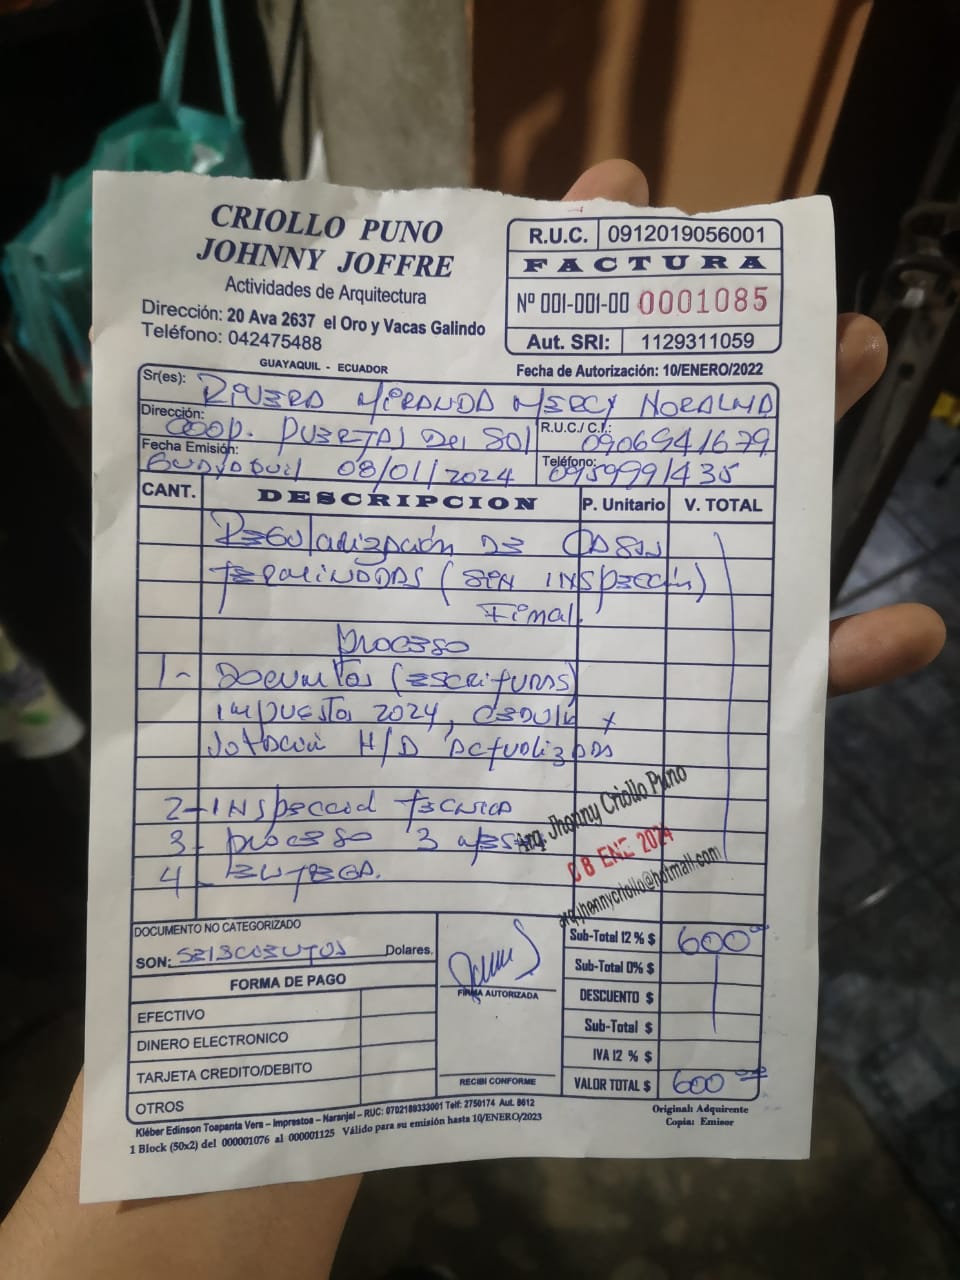 CRIOLLO PUNO
JOHNNY JOFFRE
Actividades de Arquitectura
Dirección: 20 Ava 2637 el Oro y Vacas Galindo
Teléfono: 042475488
GUAYAQUIL - ECUADOR
R.U.C. 0912019056001
FACTURA
Nº 001-001-00 0001085
Aut. SRI: 1129311059
Fecha de Autorización: 10/ENERO/2022
Sr(es): RIVERA MIRANDA MERCY NORALMA
Dirección: COOP. PUERTAS DEL SOL R.U.C./ C.I.: 0906941679
Fecha Emisión: GUAYAQUIL 08/01/2024 Teléfono: 0959991435
CANT. DESCRIPCION P. Unitario V. TOTAL
REGULARIZACIÓN DE
TERMINADAS (SIN INSPECCIÓN)
FINAL.
PROCESO
1- (ESCRITURAS)
IMPUESTOS 2024, CEDULA Y
VOTACIÓN H/D ACTUALIZADAS
2- INSPECCION TECNICA
3- PROCESO 3
4- ENTREGA.
Arq. Jhonny Criollo Puno
08 ENE 2024
arq.jhonnycriollo@hotmail.com
DOCUMENTO NO CATEGORIZADO
SON: SEISCIENTOS Dolares.
FORMA DE PAGO
EFECTIVO
DINERO ELECTRONICO
TARJETA CREDITO/DEBITO
OTROS
FIRMA AUTORIZADA
RECIBI CONFORME
Sub-Total 12 % $ 600
Sub-Total 0% $
DESCUENTO $
Sub-Total $
IVA 12 % $
VALOR TOTAL $ 600
Kléber Edinson Toapanta Vera – Imprestos – Naranjal - RUC: 0702189333001 Telf: 2750174 Aut. 8612
1 Block (50x2) del 000001076 al 000001125 Válido para su emisión hasta 10/ENERO/2023
Original: Adquirente
Copia: Emisor